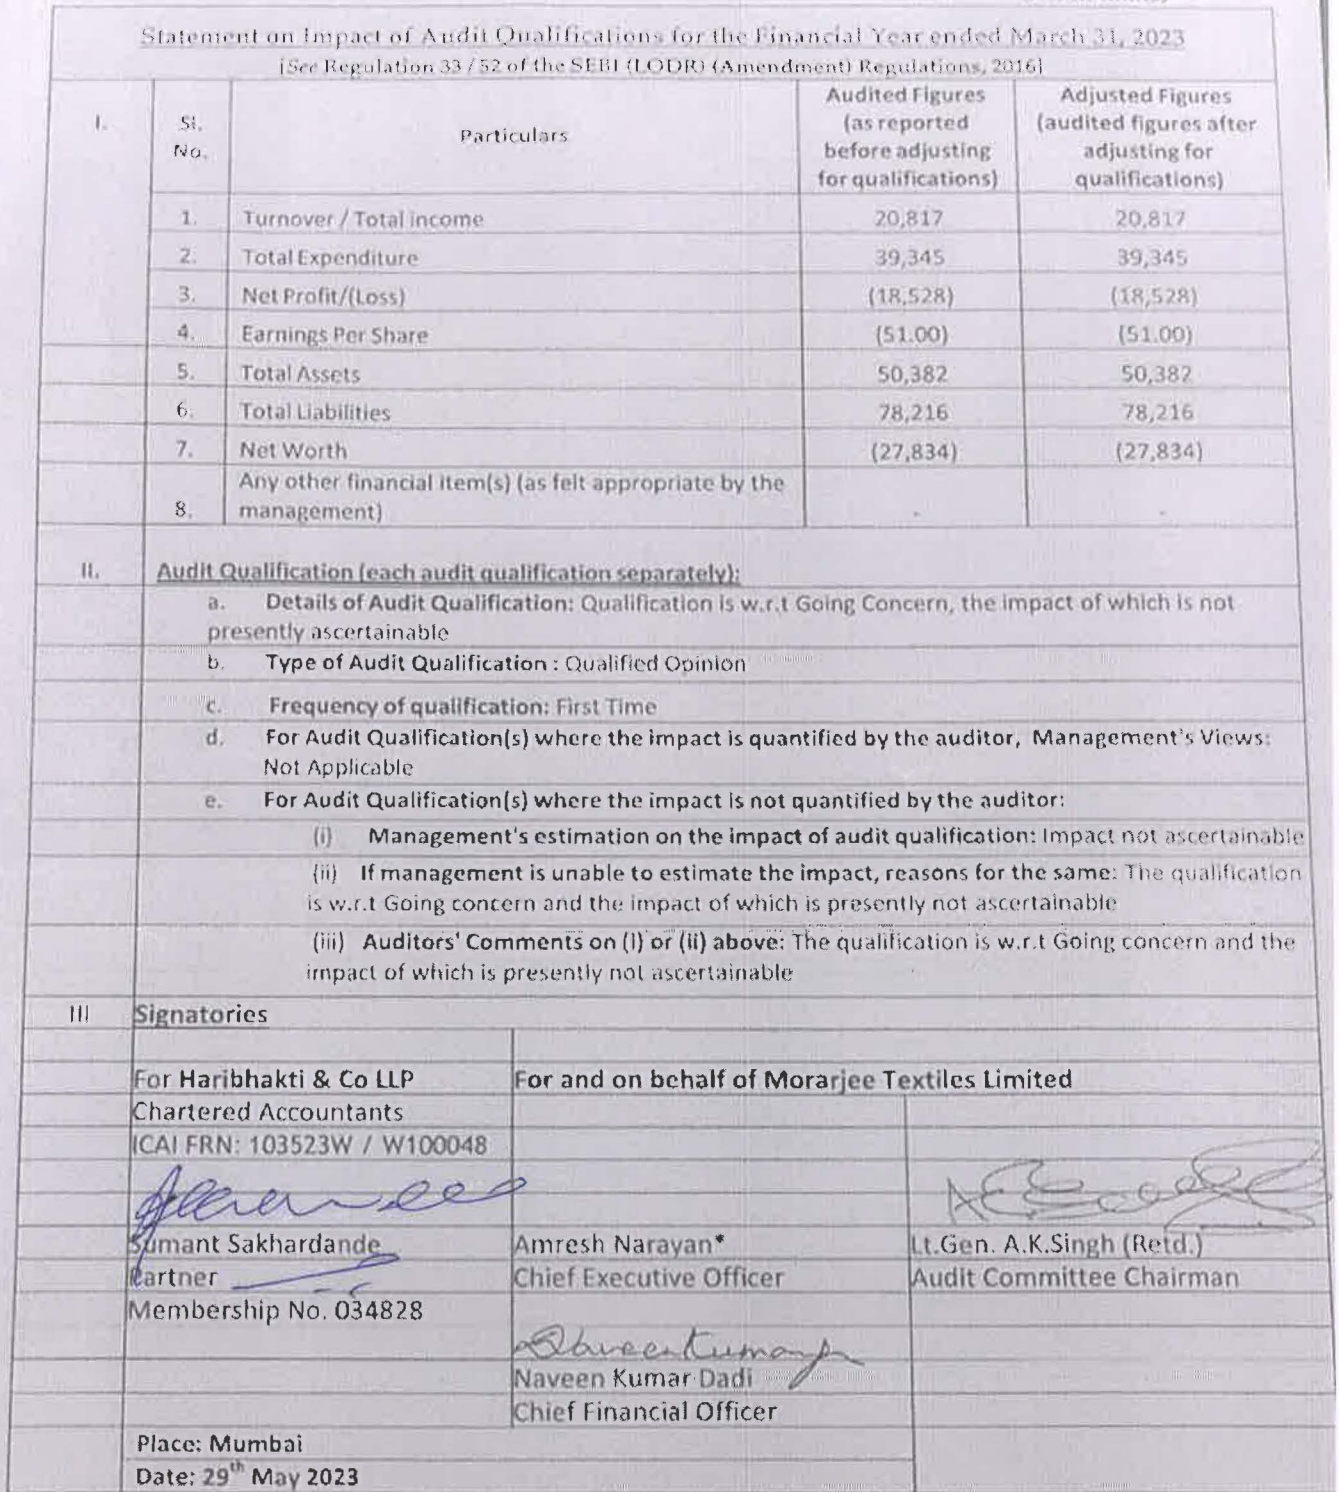 Statement on Impact of Audit Qualifications for the Financial Year ended March 31, 2023
[See Regulation 33 / 52 of the SEBI (LODR) (Amendment) Regulations, 2016]
I. Sl. No. Particulars Audited Figures (as reported before adjusting for qualifications) Adjusted Figures (audited figures after adjusting for qualifications)
1. Turnover / Total income 20,817 20,817
2. Total Expenditure 39,345 39,345
3. Net Profit/(Loss) (18,528) (18,528)
4. Earnings Per Share (51.00) (51.00)
5. Total Assets 50,382 50,382
6. Total Liabilities 78,216 78,216
7. Net Worth (27,834) (27,834)
8. Any other financial item(s) (as felt appropriate by the management) - -
II. Audit Qualification (each audit qualification separately):
a. Details of Audit Qualification: Qualification is w.r.t Going Concern, the impact of which is not
presently ascertainable
b. Type of Audit Qualification : Qualified Opinion
c. Frequency of qualification: First Time
d. For Audit Qualification(s) where the impact is quantified by the auditor, Management's Views:
Not Applicable
e. For Audit Qualification(s) where the impact is not quantified by the auditor:
(i) Management's estimation on the impact of audit qualification: Impact not ascertainable
(ii) If management is unable to estimate the impact, reasons for the same: The qualification
is w.r.t Going concern and the impact of which is presently not ascertainable
(iii) Auditors' Comments on (i) or (ii) above: The qualification is w.r.t Going concern and the
impact of which is presently not ascertainable
III Signatories
For Haribhakti & Co LLP For and on behalf of Morarjee Textiles Limited
Chartered Accountants
ICAI FRN: 103523W / W100048
Sumant Sakhardande Amresh Narayan* Lt.Gen. A.K.Singh (Retd.)
Partner Chief Executive Officer Audit Committee Chairman
Membership No. 034828
Naveen Kumar Dadi
Chief Financial Officer
Place: Mumbai
Date: 29th May 2023